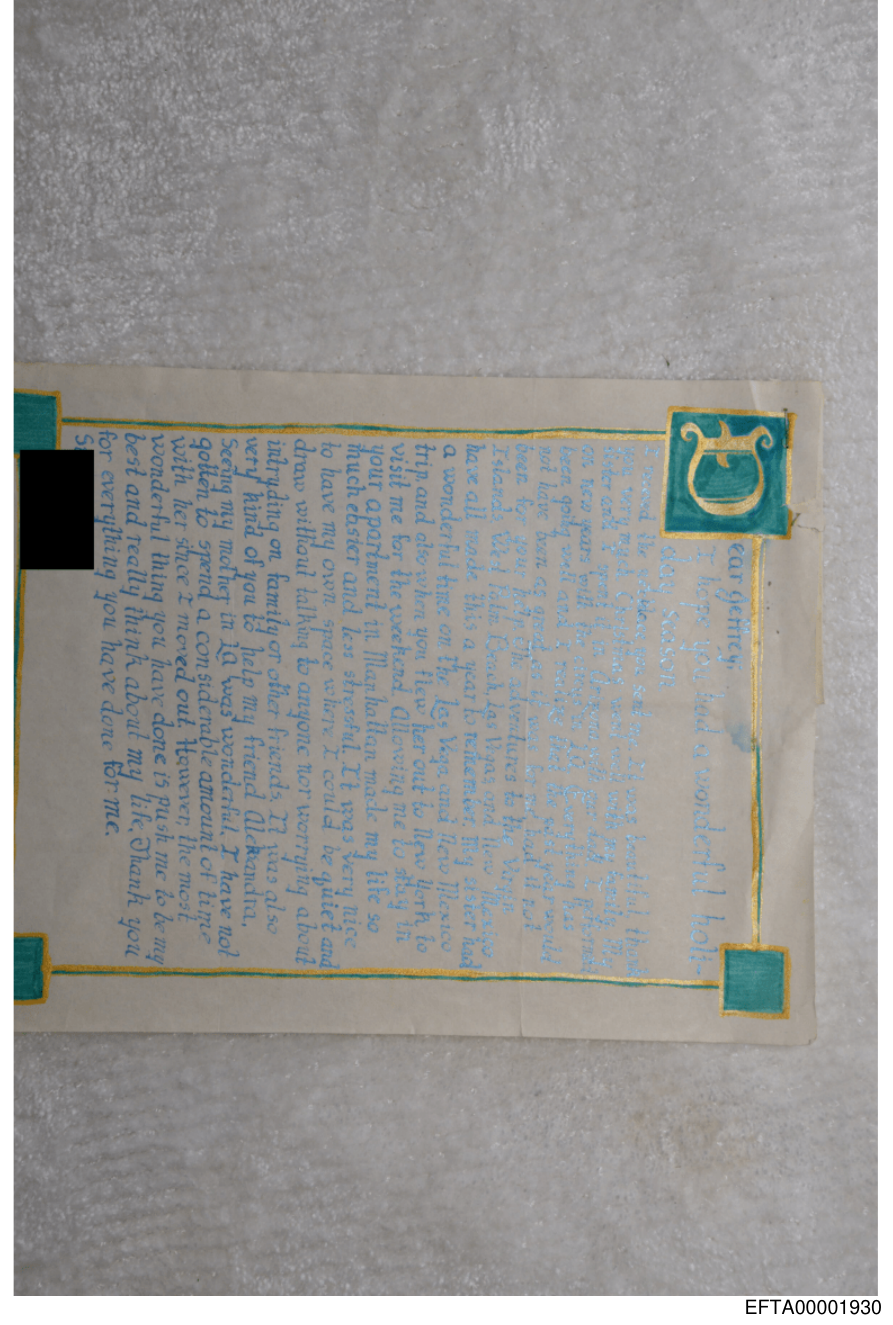 Dear Jeffrey,
I hope you had a wonderful holi-
day season
I loved the you sent me. It was beautiful thank
you very much. Christmas was with my family, my
sister and I spent it in and I
on new years with the . Everything has
been going well and I realize that the past year would
not have been as good as it was hand it not
been for your help. The adventures to the Virgin
Islands, West Palm Beach, Las Vegas and New Mexico
have all made this a year to remember. My sister had
a wonderful time on the Las Vegas and New Mexico
trip, and also when you flew her out to New York to
visit me for the weekend. Allowing me to stay in
your apartment in Manhattan made my life so
much easier and less stressful. It was very nice
to have my own space where I could be quiet and
draw without talking to anyone not worrying about
intruding on family or other friends. It was also
very kind of you to help my friend Alexandra,
Seeing my mother in LA was wonderful. I have not
gotten to spend a considerable amount of time
with her since I moved out. However, the most
wonderful thing you have done is push me to be my
best and really think about my life. Thank you
for everything you have done for me.
EFTA00001930